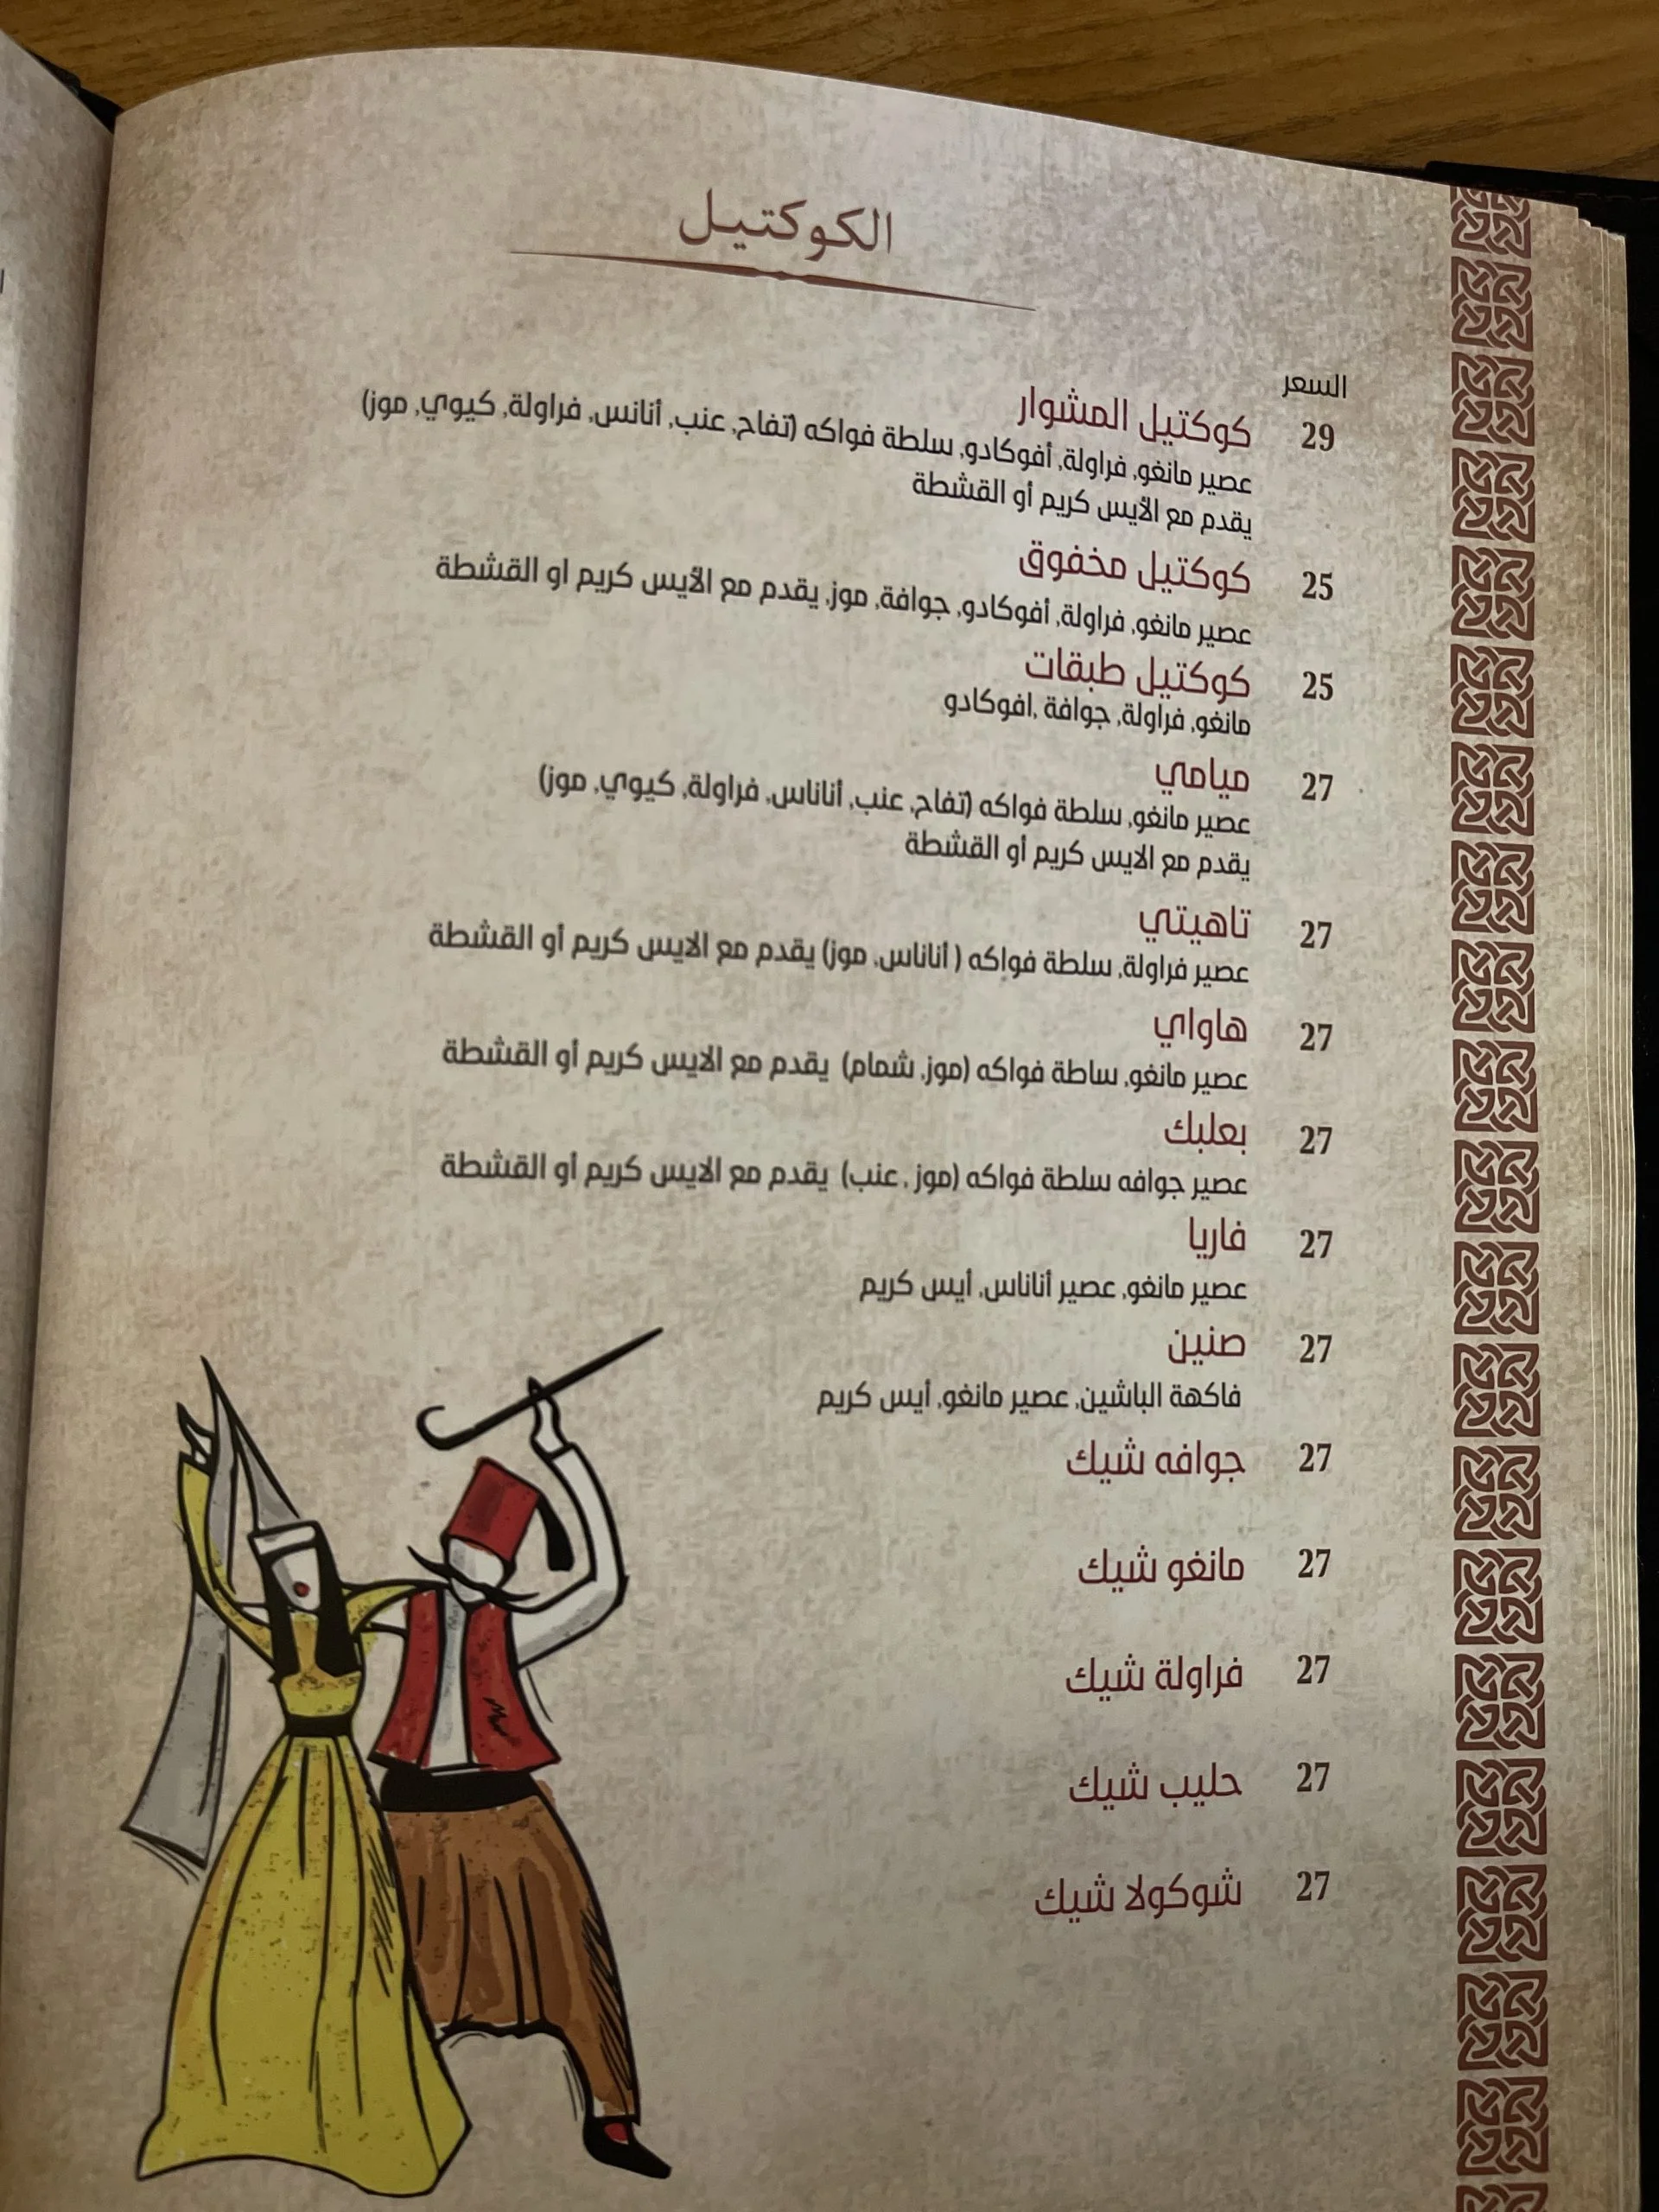 الكوكتيل
السعر
29 كوكتيل المشوار
عصير مانغو, فراولة, أفوكادو, سلطة فواكه (تفاح, عنب, أنانس, فراولة, كيوي, موز)
يقدم مع الأيس كريم أو القشطة
25 كوكتيل مخفوق
عصير مانغو, فراولة, أفوكادو, جوافة, موز, يقدم مع الأيس كريم او القشطة
25 كوكتيل طبقات
مانغو, فراولة, جوافة ,افوكادو
27 ميامي
عصير مانغو, سلطة فواكه (تفاح, عنب, أناناس, فراولة, كيوي, موز)
يقدم مع الايس كريم أو القشطة
27 تاهيتي
عصير فراولة, سلطة فواكه ( أناناس, موز) يقدم مع الايس كريم أو القشطة
27 هاواي
عصير مانغو, ساطة فواكه (موز, شمام) يقدم مع الايس كريم أو القشطة
27 بعلبك
عصير جوافه سلطة فواكه (موز , عنب) يقدم مع الايس كريم أو القشطة
27 فاريا
عصير مانغو, عصير أناناس, أيس كريم
27 صنين
فاكهة الباشين, عصير مانغو, أيس كريم
27 جوافه شيك
27 مانغو شيك
27 فراولة شيك
27 حليب شيك
27 شوكولا شيك